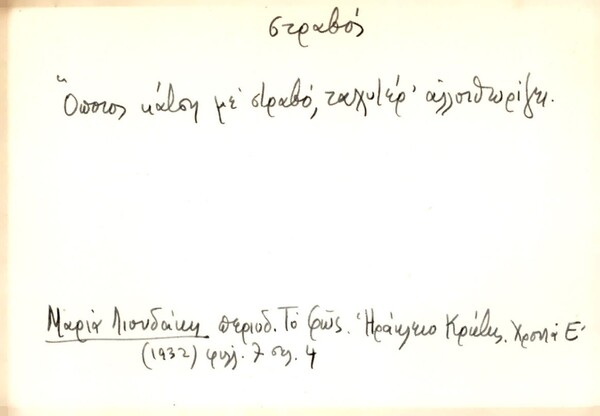 στραβός
Ὅποιος κάτση μέ στραβό, ταχυτέρ' ἀλλοιθωρίζει.
Μαρία Λιουδάκη περιοδ. Τό Φῶς. Ἡράκλειο Κρήτης. Χρονιά Ε'
(1932) φυλ. 7 σελ. 4